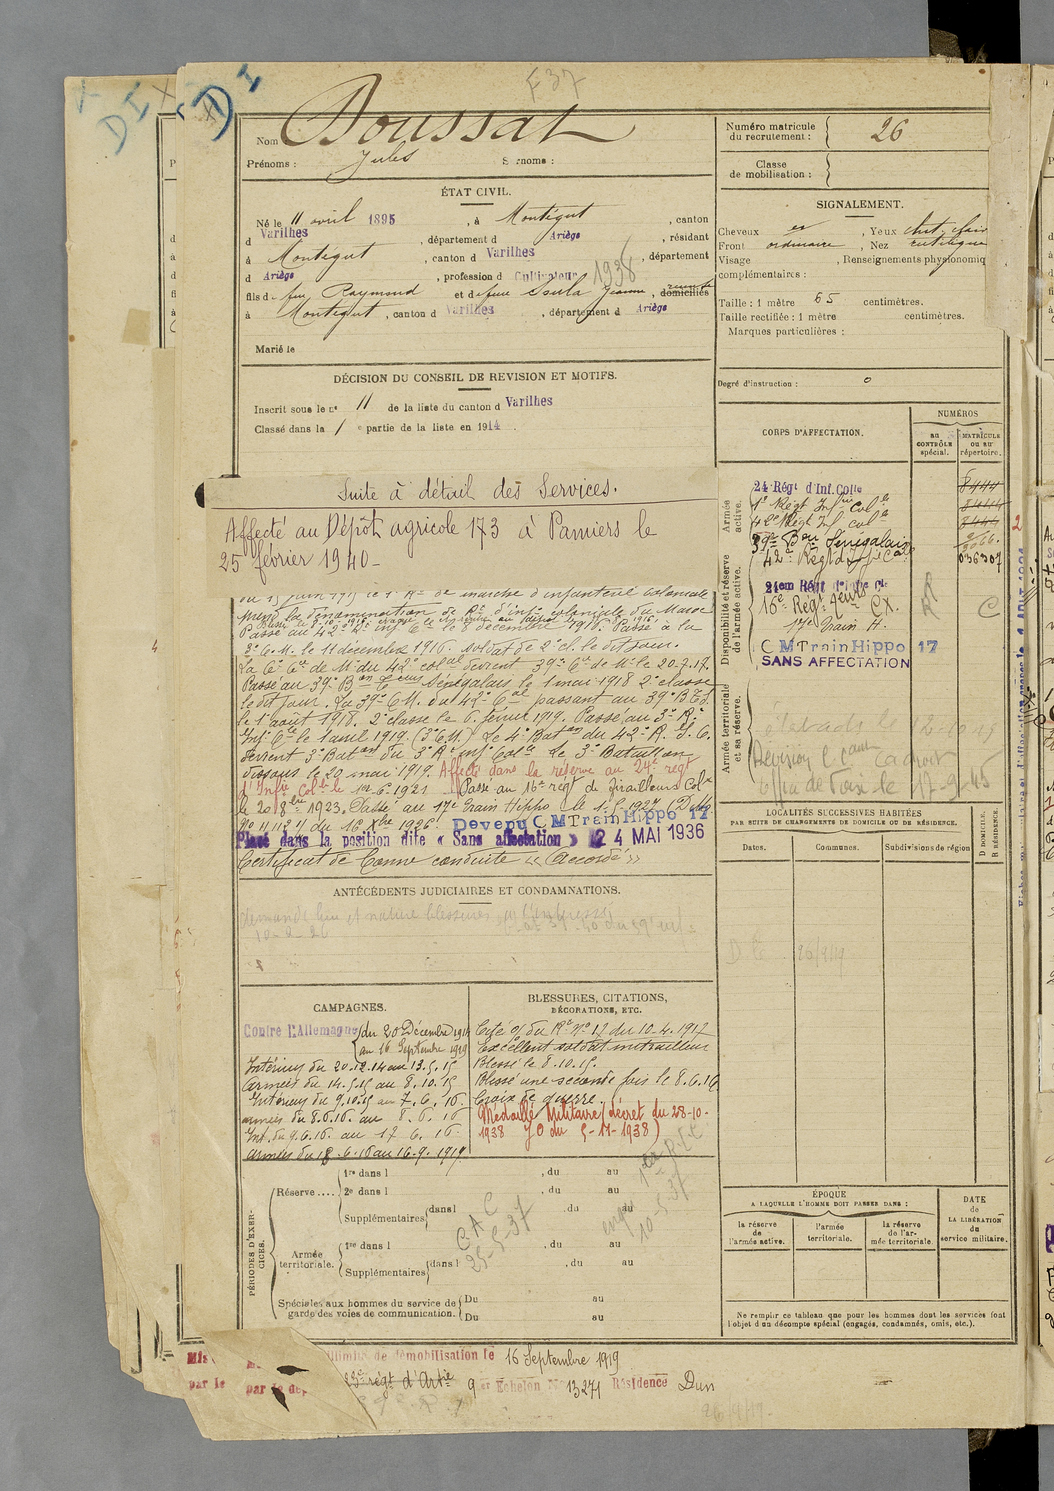 F37
DI
DI
Nom Doussat
Prénoms : Jules Surnoms :
Numéro matricule du recrutement : 26
Classe de mobilisation :
ÉTAT CIVIL.
Né le 11 avril 1895, à Montégut, canton
d Varilhes, département d Ariège, résidant
à Montégut, canton d Varilhes, département
d Ariège, profession d Cultivateur 1938
fils d feu Raymond et d feue Soula Jeanne, domiciliés
à Montégut, canton d Varilhes, département d Ariège
Marié le
SIGNALEMENT.
Cheveux, Yeux chat. clair
Front ordinaire, Nez rectiligne
Visage, Renseignements physionomiq
complémentaires :
Taille : 1 mètre 65 centimètres.
Taille rectifiée : 1 mètre centimètres.
Marques particulières :
Degré d'instruction : 0
DÉCISION DU CONSEIL DE REVISION ET MOTIFS.
Inscrit sous le n° 11 de la liste du canton d Varilhes
Classé dans la 1 e partie de la liste en 1914.
Suite à détail des Services.
Affecté au Dépôt agricole 173 à Pamiers le
25 février 1940-
du 15 juin 1915 le 1er Rt de marche d'infanterie coloniale
prend la dénomination de Rt d'infie coloniale du Maroc
Passé au 42e Rt inf Cle le 8 décembre 1916. Passé à la
3e C.M. le 11 décembre 1916. soldat de 2e cl. le dit jour.
La 6e Cie de M. du 42e colal devient 39e Cie de M. le 20.7.17.
Passé au 39e Bon Sénégalais le 1 mai 1918 2e classe
le dit jour. La 39e C.M. du 42e Cal passant au 39e B.T.S.
le 1 août 1918. 2e classe le 6 février 1919. Passé au 3e Rt
Infie Cle le 1 avril 1919. (3e C.M.) Le 4e Baton du 42e R.I.C.
devient 3e Baton du 3e Rt infie Colle Le 3e Bataillon
dissous le 20 mai 1919. Affecté dans la réserve au 24e régt
d'Infie Colale le 1er 6. 1921 Passé au 16e régt de Tirailleurs Colx
le 20 8bre 1923. Passé au 17e Train Hippo le 1.5.1927 (D.M.
du 16 Xbre 1926. Devenu C M Train Hippo 17
Placé dans la position dite « Sans affectation » le 24 MAI 1936
Certificat de bonne conduite « Accordé »
CORPS D'AFFECTATION.
NUMÉROS
au CONTRÔLE spécial.
MATRICULE ou au répertoire.
Armée active.
24 Régt d'Inf. Colle
1er Régt Infie Colle
42e Régt If. colle
39e Bon Sénégalais
42e Régt d'Infie Cale
8444
8444
8444
036307
Disponibilité et réserve de l'armée active.
24em Régt d'Infie Cle
16e Régt
17e Train H.
C M Train Hippo 17
SANS AFFECTATION
R
R
C
Armée territoriale et sa réserve.
le 12-10-45
Révision
de Foix le 17-9-45
LOCALITÉS SUCCESSIVES HABITÉES
PAR SUITE DE CHANGEMENTS DE DOMICILE OU DE RÉSIDENCE.
Dates. Communes. Subdivisions de région D DOMICILE. R RÉSIDENCE.
26/9/19
ANTÉCÉDENTS JUDICIAIRES ET CONDAMNATIONS.
demande lieu et nature blessures
CAMPAGNES.
Contre l'Allemagne du 20 Décembre 1914
au 16 Septembre 1919
Intérieur du 20.12.14 au 13.5.15
Armées du 14.5.15 au 8.10.15
Intérieur du 9.10.15 au 7.6.16
armées du 8.6.16 au 8.6.16
Int. du 9.6.16 au 17.6.16
armées du 18.6.16 au 16.9.1919
BLESSURES, CITATIONS,
DÉCORATIONS, ETC.
Cité o/ du Rt No 17 du 10.4.1917
Excellent soldat mitrailleur
Blessé le 8.10.15.
Blessé une seconde fois le 8.6.16
Croix de guerre.
Médaille Militaire (décret du 28-10-
1938 JO du 5-11-1938)
PÉRIODES D'EXERCICES.
Réserve....
1re dans l, du au
2e dans l, du au
Supplémentaires dans l, du au
Armée territoriale.
1re dans l, du au
Supplémentaires dans l, du au
Spéciales aux hommes du service de garde des voies de communication.
Du au
Du au
CAC
25-5-37
10-5-37
ÉPOQUE
A LAQUELLE L'HOMME DOIT PASSER DANS :
la réserve de l'armée active.
l'armée territoriale.
la réserve de l'armée territoriale.
DATE de LA LIBÉRATION du service militaire.
Ne remplir ce tableau que pour les hommes dont les services font
l'objet d'un décompte spécial (engagés, condamnés, omis, etc.).
illimité de démobilisation le 16 Septembre 1919
par le par le dép 23e régt d'Artie 9 er Echelon No 13271 Résidence Dun
26/9/19.